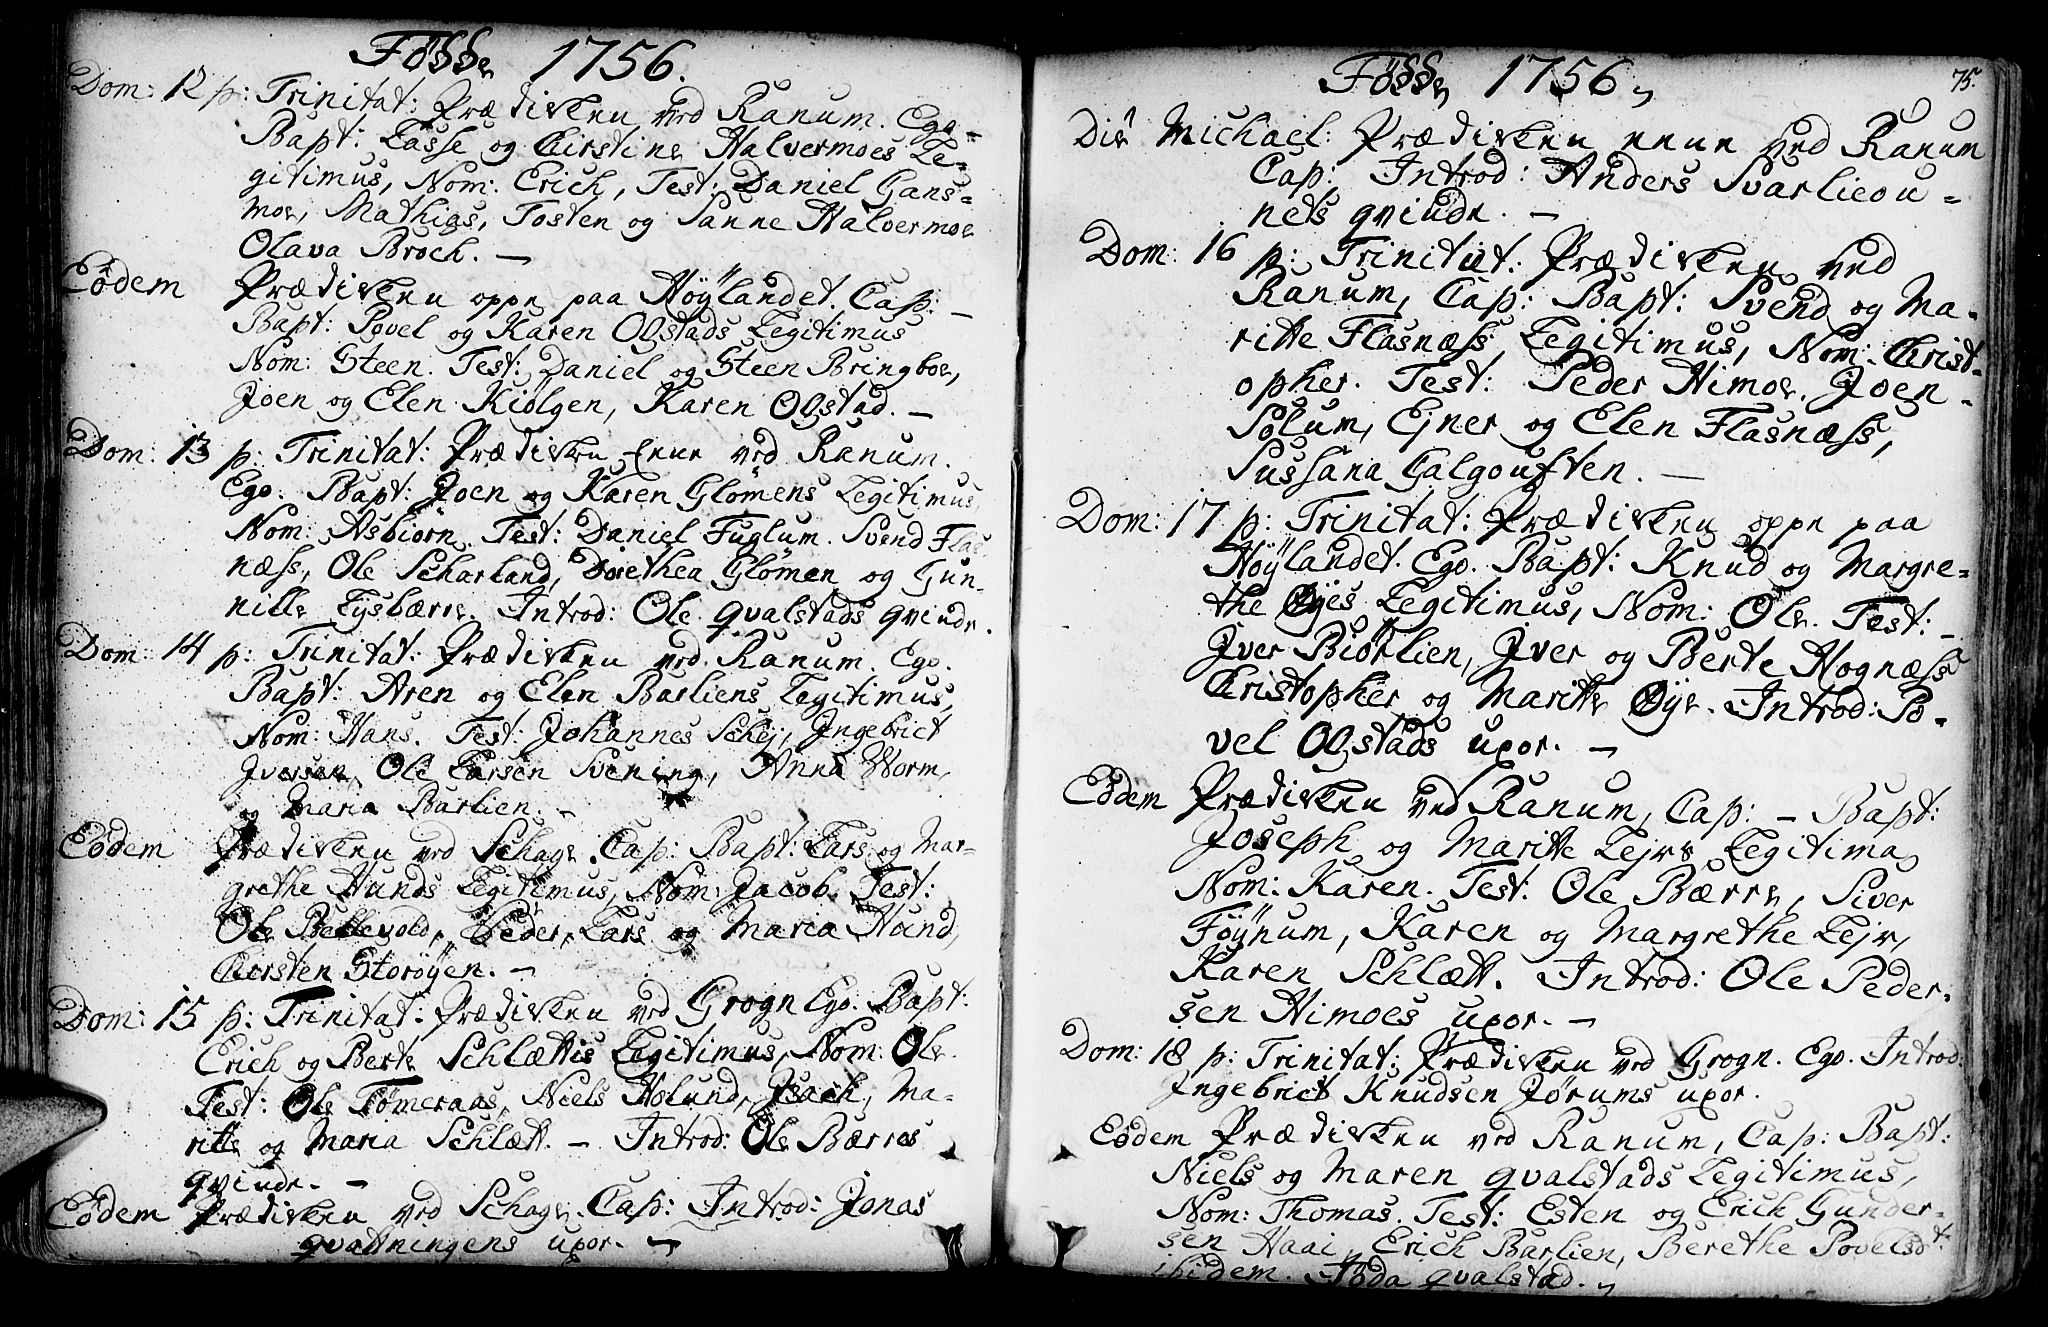 Fösse 1756.
Dom: 12 p: Trinitat: Prædiken ved Ranum. Ego
Bapt: Lasse og Kirstine Halvermoes Le-
gitimus, Nom: Erich, Test: Daniel Gans-
moe, Mathias, Tosten og Sanne Halvermoe
Olava Broch. —
Eôdem Prædiken oppe paa Höÿlandet. Cap: —
Bapt: Povel og Karen Ogstads Legitimus
Nom: Steen. Test: Daniel og Steen Bringboe,
Joen og Elen Kiölgen, Karen Ogstad. —
Dom: 13 p: Trinitat: Prædiken -enne ved Ranum.
Ego. Bapt: Joen og Karen Glömens Legitimus
Nom: Asbiörn. Test: Daniel Fuglum. Svend Flas-
næss, Ole Scharland, Dorethea Glömen og Gun-
nille Lysbærre. Introd: Ole qvalstads qvinde.
Dom: 14 p: Trinitat: Prædiken ved Ranum. Ego.
Bapt: Aren og Elen Barliens Legitimus,
Nom: Hans. Test: Johannes Schej, Ingebrict
Jversen, Ole Larsen Svening, Anna Worm,
og Maria Barlien. —
Eôdem Prædiken ved Schage. Cap: Bapt: Lars og Mar-
grethe Hunds Legitimus, Nom: Jacob. Test:
Ole Bellevold, Peder, Lars og Maria Hund,
Kirsten Storöyen. —
Dom: 15 p: Trinitat: Prædiken ved Grogn Ego. Bapt:
Erich og Berte Schlættis Legitimus, Nom: Ole.
Test: Ole Tömeraas, Niels Aslund, Isach, Ma-
ritte og Maria Schlætt. — Introd: Ole Bærres
qvinde. —
Eôdem Prædiken ved Schage. Cap: Introd: Jonas
qvatningens uxor. —
Fösse 1756. 75.
Die Michael: Prædiken enne ved Ranum
Cap: Introd: Anders Svarlieou-
nets qvinde. —
Dom: 16 p: Trinitat: Prædiken ved
Ranum, Cap: Bapt: Svend og Ma-
ritte Flasnæss, Legitimus, Nom: Christ-
opher. Test: Peder Himoe. Joen-
Solum, Ejner og Elen Flasnæss,
Sussana Calgouften. —
Dom: 17 p: Trinitat: Prædiken oppe paa
Höÿlandet. Ego. Bapt: Knud og Margre-
the Øyes Legitimus, Nom: Ole. Test: —
Jver Biörlien, Jver og Berte Hognæss
Christopher og Maritte Øye. Introd: Po-
vel Ogstads uxor. —
Eôdem Prædiken ved Ranum, Cap: — Bapt:
Joseph og Maritte Lejrs Legitima
Nom: Karen. Test: Ole Bærre, Siver
Föÿnum, Karen og Margrethe Lejr,
Karen Schlætt. Introd: Ole Peder-
sen Himoes uxor. —
Dom: 18 p: Trinitat: Prædiken ved Grogn. Ego. Introd:
Ingebrict Knudsen Jörums uxor.
Eôdem Prædiken ved Ranum, Cap: Bapt:
Niels og Maren qvalstads Legitimus,
Nom: Thomas. Test: Esten og Erich Gunder-
sen Haai, Erich Barlien, Berethe Povelsdt.
ibidem. Töda qvalstad.